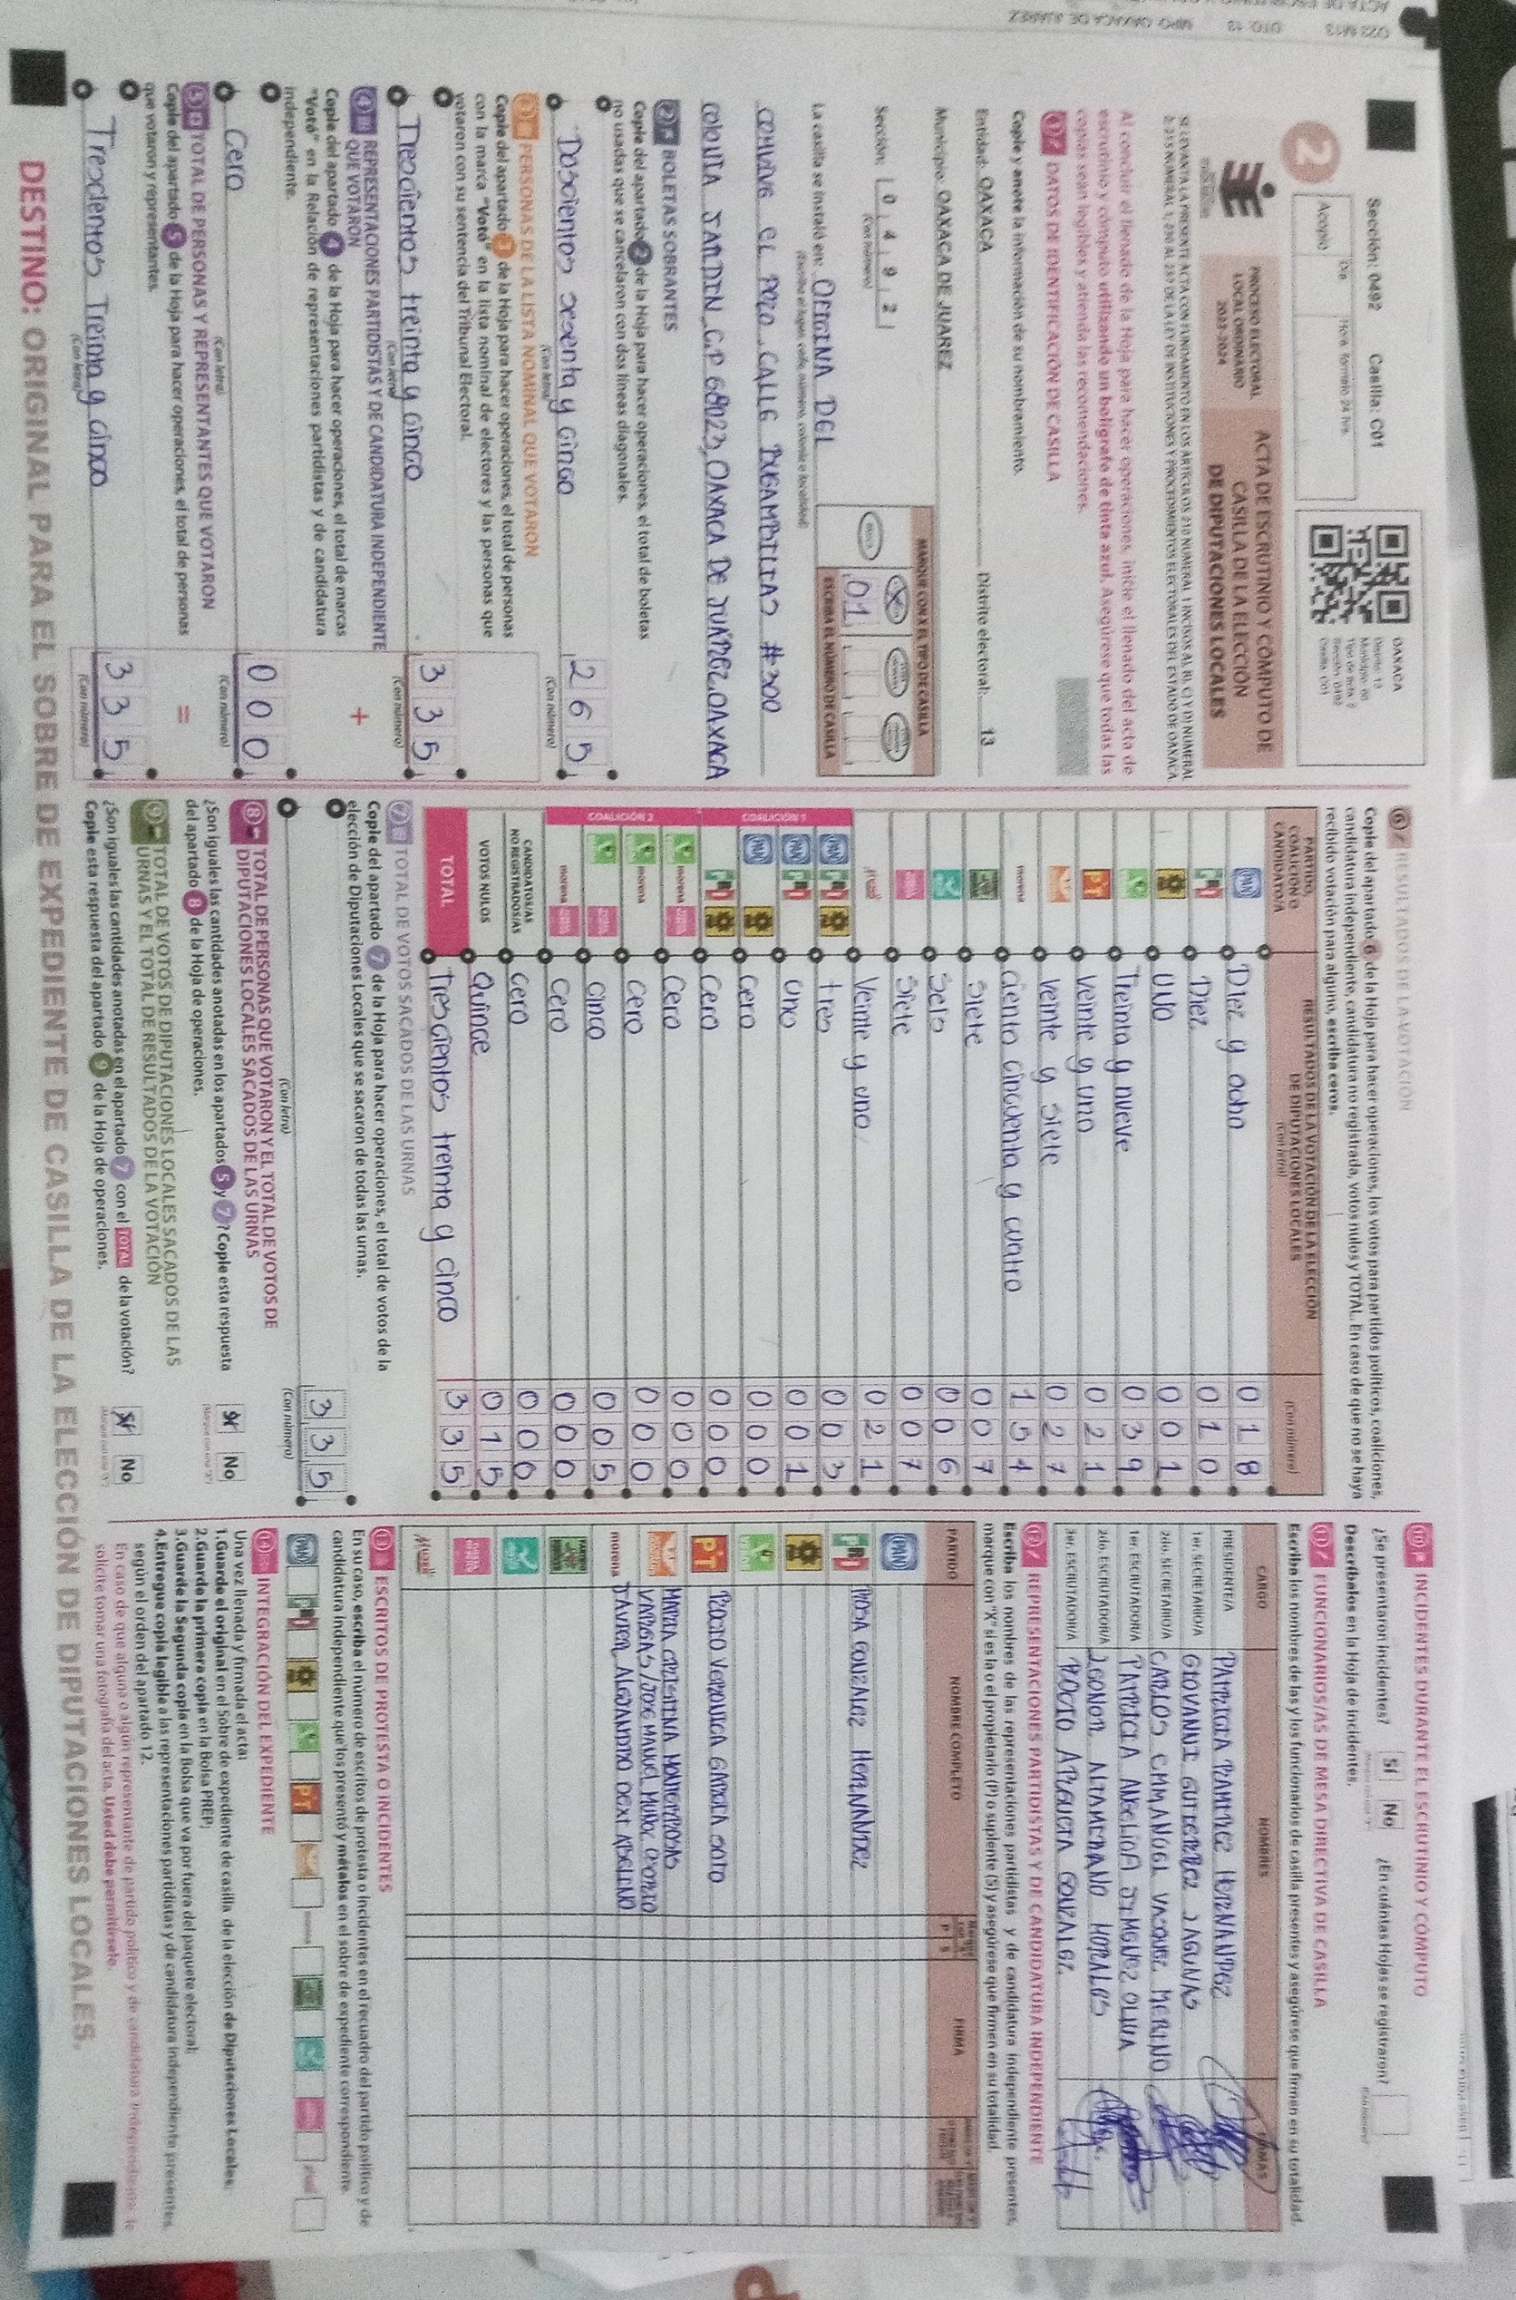 Sección: 0492 Casilla: C01
Acopio
2
PROCESO ELECTORAL
LOCAL ORDINARIO
2023-2024
ACTA DE ESCRUTINIO Y CÓMPUTO DE
CASILLA DE LA ELECCIÓN
DE DIPUTACIONES LOCALES
OAXACA
Al concluir el llenado de la Hoja para hacer operaciones, inicie el llenado del acta de
escrutinio y cómputo utilizando un bolígrafo de tinta azul. Asegúrese que todas las
copias sean legibles y atienda las recomendaciones.
1 DATOS DE IDENTIFICACIÓN DE CASILLA
Copie y anote la información de su nombramiento.
Entidad: OAXACA Distrito electoral: 13
Municipio: OAXACA DE JUAREZ
Sección: 0 4 9 2
(Con número)
MARQUE CON X EL TIPO DE CASILLA
ESCRIBA EL NÚMERO DE CASILLA
01
La casilla se instaló en: OFICINA DEL
COMVIVE EL POZO, CALLE BUGAMBILIAS # 300
COLONIA JARDIN, C.P 68023, OAXACA DE JUÁREZ, OAXACA
2 BOLETAS SOBRANTES
Copie del apartado 2 de la Hoja para hacer operaciones, el total de boletas
no usadas que se cancelaron con dos líneas diagonales.
Doscientos sesenta y cinco 2 6 5
(Con letra) (Con número)
3 PERSONAS DE LA LISTA NOMINAL QUE VOTARON
Copie del apartado 3 de la Hoja para hacer operaciones, el total de personas
con la marca "Votó" en la lista nominal de electores y las personas que
votaron con su sentencia del Tribunal Electoral.
Trescientos treinta y cinco 3 3 5
(Con letra) (Con número)
4 REPRESENTACIONES PARTIDISTAS Y DE CANDIDATURA INDEPENDIENTE
QUE VOTARON
+
Copie del apartado 4 de la Hoja para hacer operaciones, el total de marcas
"Votó" en la Relación de representaciones partidistas y de candidatura
independiente.
Cero 0 0 0
(Con letra) (Con número)
5 TOTAL DE PERSONAS Y REPRESENTANTES QUE VOTARON
=
Copie del apartado 5 de la Hoja para hacer operaciones, el total de personas
que votaron y representantes.
Trescientos Treinta y cinco 3 3 5
(Con letra) (Con número)
6 RESULTADOS DE LA VOTACIÓN
Copie del apartado 6 de la Hoja para hacer operaciones, los votos para partidos políticos, coaliciones,
candidatura independiente, candidatura no registrada, votos nulos y TOTAL. En caso de que no se haya
recibido votación para alguno, escriba ceros.
PARTIDO,
COALICIÓN O
CANDIDATO/A
RESULTADOS DE LA VOTACIÓN DE LA ELECCIÓN
DE DIPUTACIONES LOCALES
(Con letra) (Con número)
PAN Diez y ocho 0 1 8
PRI Diez 0 1 0
UNO 0 0 1
Treinta y nueve 0 3 9
PT Veinte y uno 0 2 1
Veinte y siete 0 2 7
morena Ciento cincuenta y cuatro 1 5 4
siete 0 0 7
Seis 0 0 6
Siete 0 0 7
Veinte y uno 0 2 1
COALICIÓN 1
PAN PRI tres 0 0 3
PAN PRI uno 0 0 1
PAN Cero 0 0 0
PRI Cero 0 0 0
COALICIÓN 2
morena Cero 0 0 0
morena Cero 0 0 0
cinco 0 0 5
morena Cero 0 0 0
CANDIDATOS/AS
NO REGISTRADOS/AS Cero 0 0 0
VOTOS NULOS Quince 0 1 5
TOTAL Trescientos treinta y cinco 3 3 5
7 TOTAL DE VOTOS SACADOS DE LAS URNAS
Copie del apartado 7 de la Hoja para hacer operaciones, el total de votos de la
elección de Diputaciones Locales que se sacaron de todas las urnas.
3 3 5
(Con letra) (Con número)
8 TOTAL DE PERSONAS QUE VOTARON Y EL TOTAL DE VOTOS DE
DIPUTACIONES LOCALES SACADOS DE LAS URNAS
¿Son iguales las cantidades anotadas en los apartados 5 y 7? Copie esta respuesta
del apartado 8 de la Hoja de operaciones.
Sí No
9 TOTAL DE VOTOS DE DIPUTACIONES LOCALES SACADOS DE LAS
URNAS Y EL TOTAL DE RESULTADOS DE LA VOTACIÓN
¿Son iguales las cantidades anotadas en el apartado 7 con el TOTAL de la votación?
Copie esta respuesta del apartado 9 de la Hoja de operaciones.
Sí No
10 INCIDENTES DURANTE EL ESCRUTINIO Y CÓMPUTO
¿Se presentaron incidentes? Sí No ¿En cuántas Hojas se registraron?
Descríbalos en la Hoja de incidentes.
11 FUNCIONARIOS/AS DE MESA DIRECTIVA DE CASILLA
Escriba los nombres de las y los funcionarios de casilla presentes y asegúrese que firmen en su totalidad.
CARGO NOMBRES FIRMAS
PRESIDENTE/A PATRICIA RAMIREZ HERNANDEZ
1er. SECRETARIO/A GIOVANNI GUTIERREZ LAGUNAS
2do. SECRETARIO/A CARLOS EMMANUEL VASQUEZ MERINO
1er. ESCRUTADOR/A PATRICIA ANGELICA JIMENEZ OLIVA
2do. ESCRUTADOR/A LEONOR ALTAMIRANO MORALES
3er. ESCRUTADOR/A ROCIO ARGUETA GONZALEZ
12 REPRESENTACIONES PARTIDISTAS Y DE CANDIDATURA INDEPENDIENTE
Escriba los nombres de las representaciones partidistas y de candidatura independiente presentes,
marque con "X" si es la o el propietario (P) o suplente (S) y asegúrese que firmen en su totalidad.
PARTIDO NOMBRE COMPLETO P S FIRMA
PAN
PRI ROSA GONZALEZ HERNANDEZ
PT ROCIO VERONICA GARCIA SOTO
MARIA CRISTINA MONTERROSAS
VARGAS/JOSE MANUEL MUÑOZ OSORIO
morena JAVIER ALEJANDRO DEXT ABELINO
13 ESCRITOS DE PROTESTA O INCIDENTES
En su caso, escriba el número de escritos de protesta o incidentes en el recuadro del partido político y de
candidatura independiente que los presentó y métalos en el sobre de expediente correspondiente.
PAN PRI PT
14 INTEGRACIÓN DEL EXPEDIENTE
Una vez llenada y firmada el acta:
1.Guarde el original en el Sobre de expediente de casilla de la elección de Diputaciones Locales;
2.Guarde la primera copia en la Bolsa PREP;
3.Guarde la Segunda copia en la Bolsa que va por fuera del paquete electoral;
4.Entregue copia legible a las representaciones partidistas y de candidatura independiente presentes
según el orden del apartado 12.
En caso de que alguna o algún representante de partido político y de candidatura independiente le
solicite tomar una fotografía del acta, Usted debe permitírselo.
DESTINO: ORIGINAL PARA EL SOBRE DE EXPEDIENTE DE CASILLA DE LA ELECCIÓN DE DIPUTACIONES LOCALES.